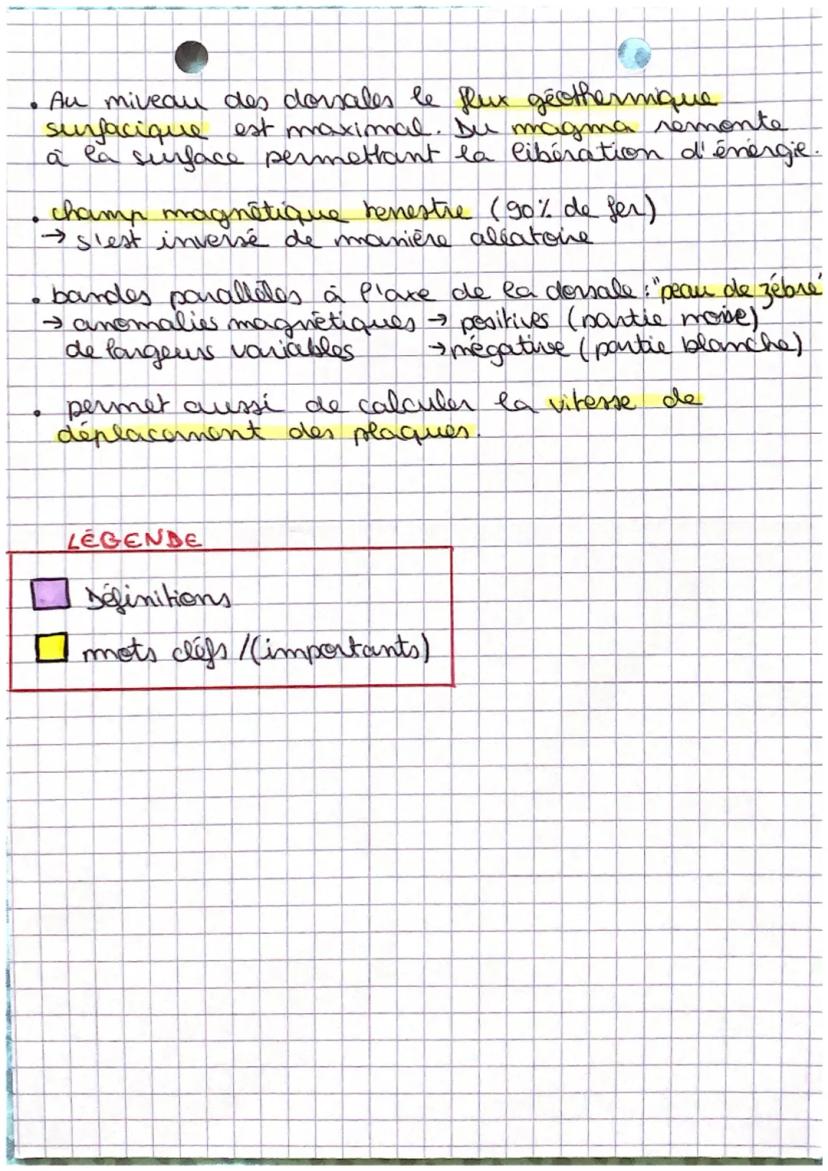 • Au niveau des dorsales le flux géothermique
surfacique est maximal. Du magma remonte
à la surface permettant la libération d'énergie.
• champ magnétique terrestre (90% de fer)
→ s'est inversé de manière aléatoire
• bandes parallèles à l'axe de la dorsale : "peau de zébre"
→ anomalies magnétiques → positives (partie noire)
de largeurs variables → négative (partie blanche)
• permet aussi de calculer la vitesse de
déplacement des plaques.
LÉGENDE
Définitions
mots cléfs / (importants)